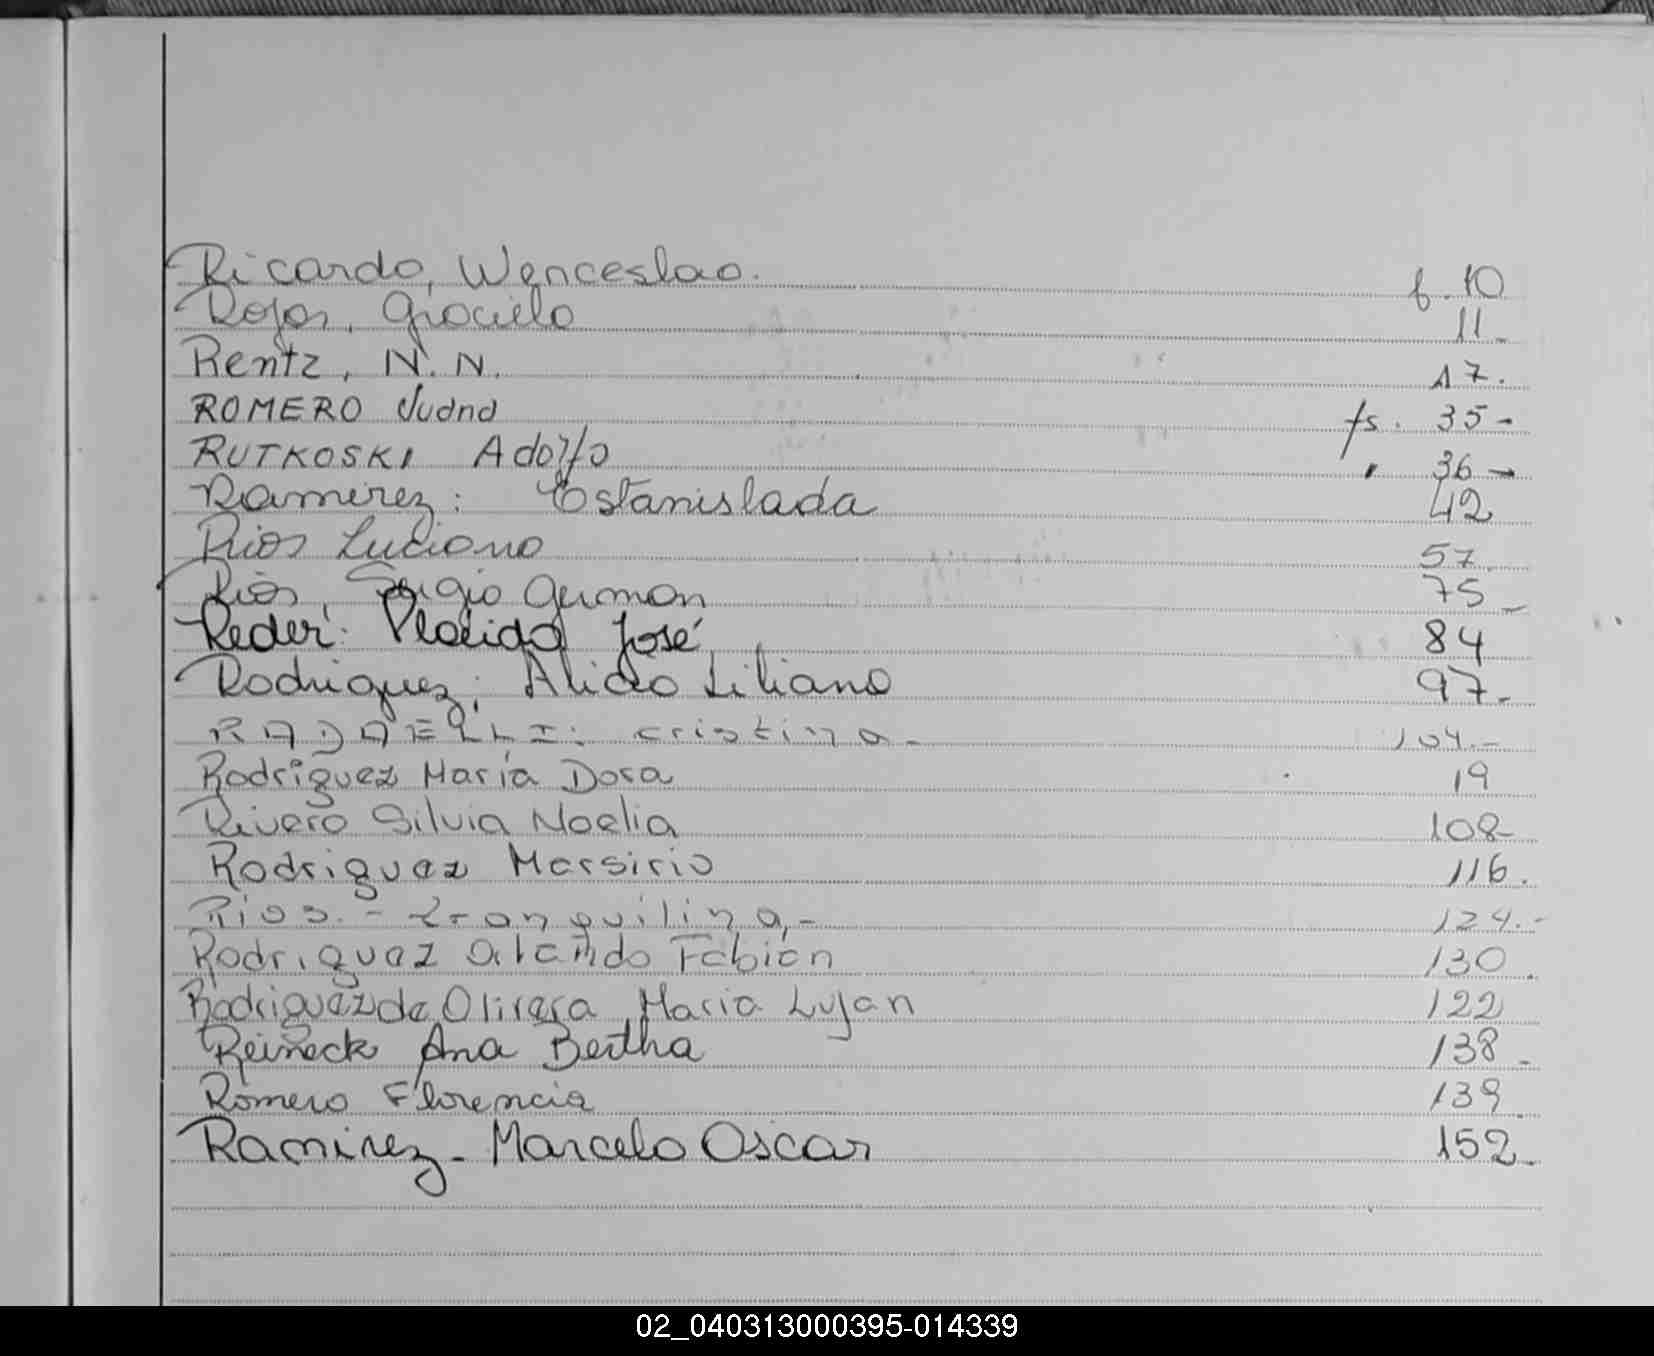 Ricardo, Wenceslao. f. 10
Rojas, Graciela 11.-
Rentz, N. N. 17.
ROMERO Juana fs. 35-
RUTKOSKI Adolfo " 36-
Ramirez: Estanislada 42
Rios Luciano 57
Ríos, Sergio German 75-
Reder: Placido José 84
Rodriguez; Alicia Liliana 97-
RADAELLI: cristina- 104.-
Rodriguez María Dora 19
Rivero Silvia Noelia 108-
Rodriguez Marsirio 116.
Rios.- Tranquilina,- 124.-
Rodriguez Orlando Fabián 130.
Rodriguez de Olivera Maria Lujan 122
Reineck Ana Bertha 138.
Romero Florencia 139.
Ramirez- Marcelo Oscar 152-
02_040313000395-014339